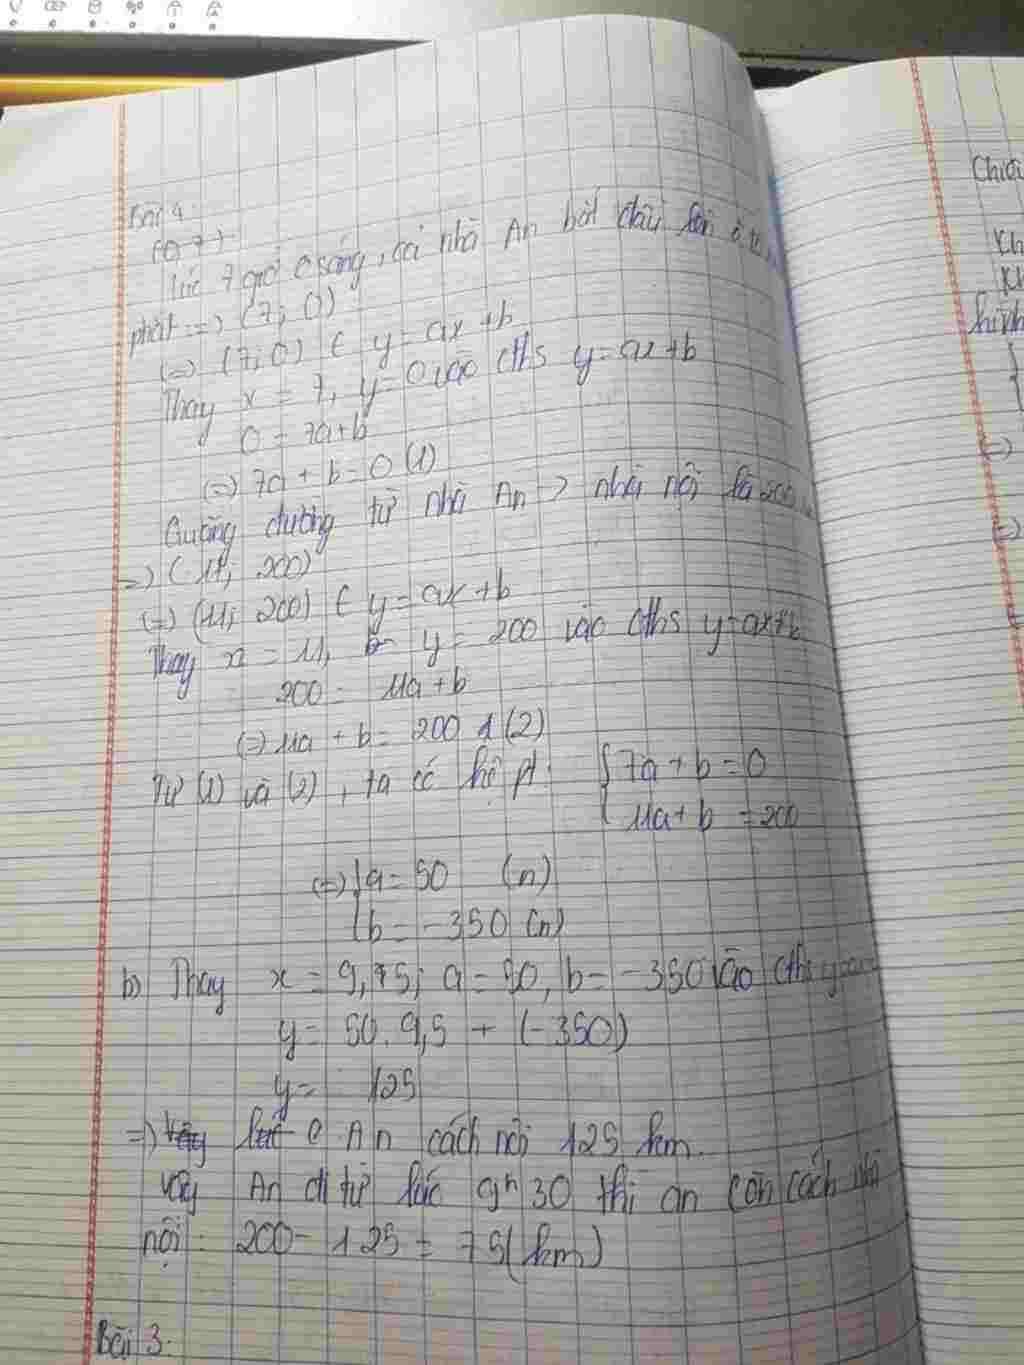 Bài 4
(0, 7)
Lúc 7 giờ sáng, cả nhà An bắt đầu lên ô tô,
phát => (7; 0)
(=) (7; 0) ∈ y = ax + b
Thay x = 7, y = 0 vào cths y = ax + b
0 = 7a + b
(=) 7a + b = 0 (1)
Quãng đường từ nhà An -> nhà nội là 200
=) (11; 200)
(=) (11; 200) ∈ y = ax + b
Thay x = 11, y = 200 vào cths y = ax + b
200 = 11a + b
(=) 11a + b = 200 (2)
Từ (1) và (2), ta có hệ pt: { 7a + b = 0
11a + b = 200
(=) { a = 50 (n)
b = -350 (n)
b) Thay x = 9,75; a = 50, b = -350 vào cths
y = 50. 9,5 + (-350)
y = 125
=) An cách nội 125 km.
vậy An đi từ lúc 9h 30 thì an còn cách nhà
nội: 200 - 125 = 75 (km)
Bài 3:
Chiều
Kh
Kh
hình
(=)
=)